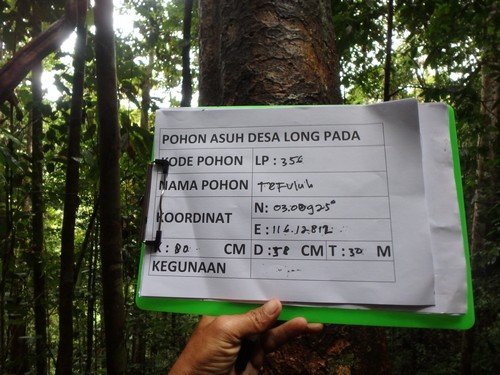 POHON ASUH DESA LONG PADA
KODE POHON LP : 356
NAMA POHON Tefuluh
KOORDINAT N: 03.08925°
E : 116.12812
K : 80 CM D : 58 CM T : 30 M
KEGUNAAN